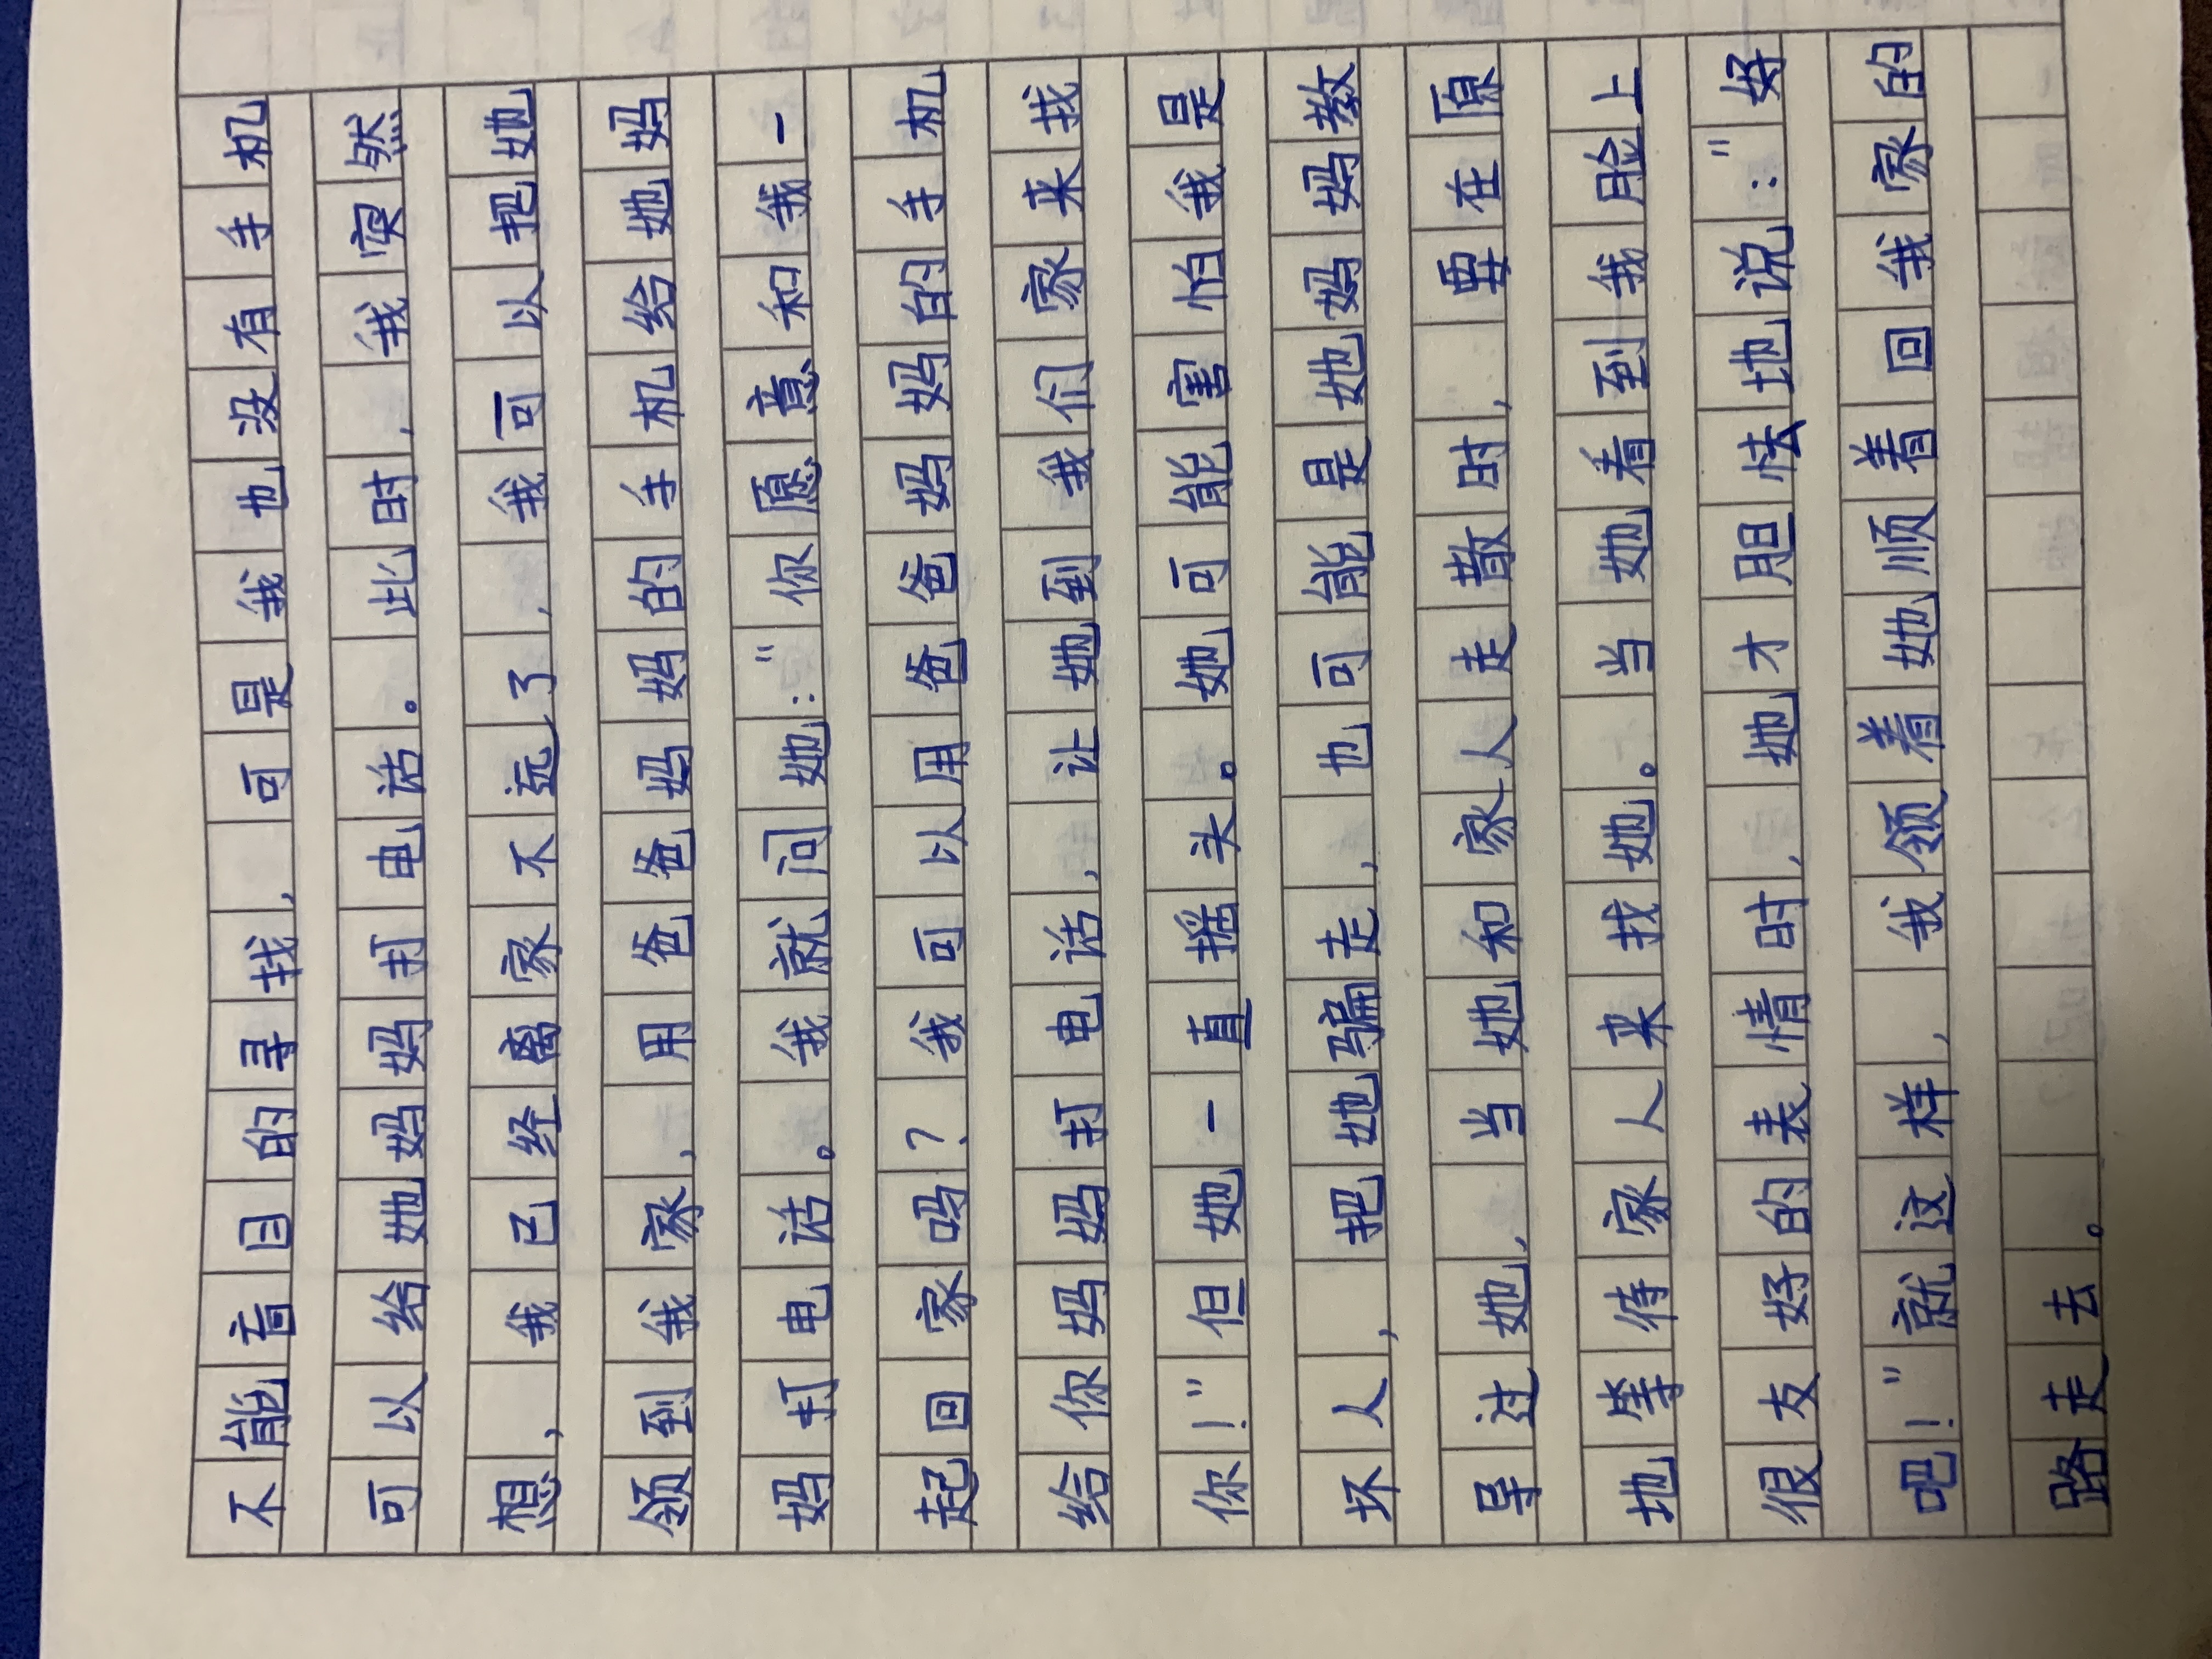 不能盲目的寻找,可是我也没有手机
可以给她妈妈打电话。此时,我突然
想,我已经离家不远了,我可以把她
领到我家,用爸爸妈妈的手机给她妈
妈打电话。我就问她:“你愿意和我一
起回家吗?我可以用爸爸妈妈的手机
给你妈妈打电话,让她到我们家来找
你!”但她一直摇头。她可能害怕我是
坏人,把她骗走,也可能是她妈妈教
导过她,当她和家人走散时,要在原
地等待家人来找她。当她看到我脸上
很友好的表情时,她才胆怯地说:“好
吧!”就这样,我领着她顺着回我家的
路走去。